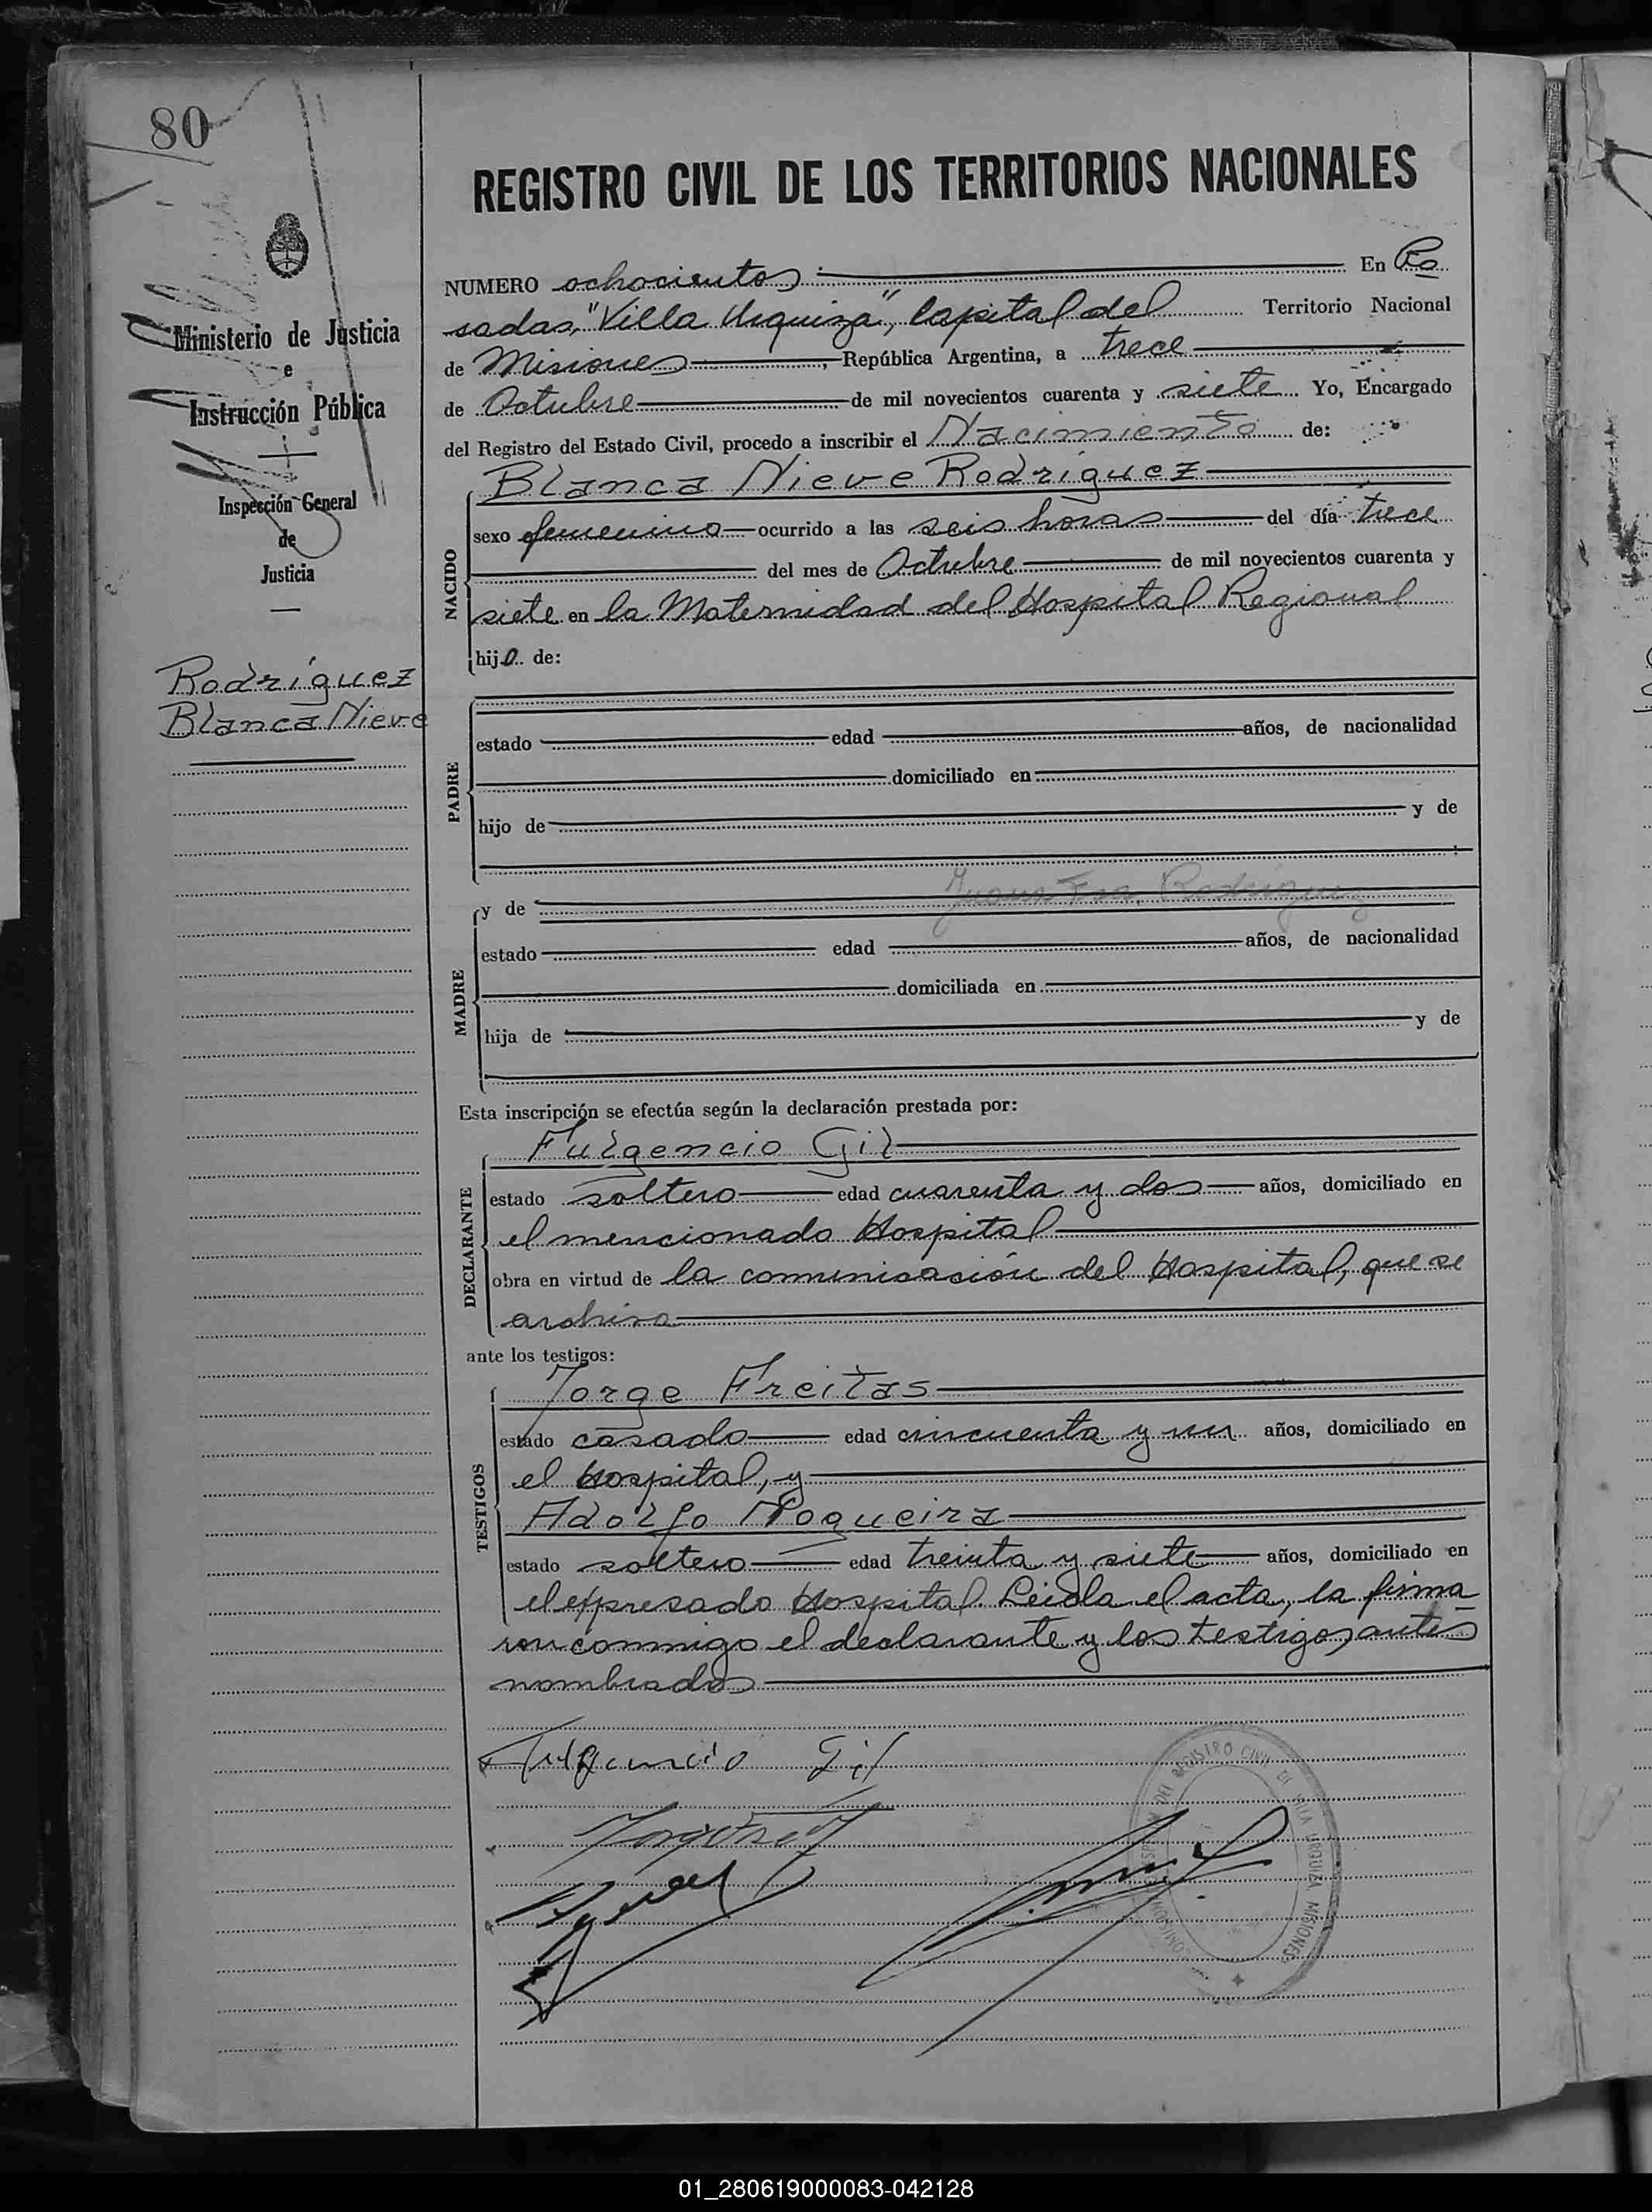 80
REGISTRO CIVIL DE LOS TERRITORIOS NACIONALES
Ministerio de Justicia
e
Instrucción Pública
Inspección General
de
Justicia
Rodríguez
Blanca Nieve
NUMERO ochocientos: En Po
sadas, "Villa Urquiza", Capital del Territorio Nacional
de Misiones, República Argentina, a trece
de Octubre de mil novecientos cuarenta y siete. Yo, Encargado
del Registro del Estado Civil, procedo a inscribir el Nacimiento de:
NACIDO
Blanca Nieve Rodríguez
sexo femenino ocurrido a las seis horas del día trece
del mes de Octubre de mil novecientos cuarenta y
siete en la Maternidad del Hospital Regional
hij0 de:
PADRE
estado edad años, de nacionalidad
domiciliado en
hijo de y de
MADRE
Juana Fca. Rodríguez
y de
estado edad años, de nacionalidad
domiciliada en
hija de y de
Esta inscripción se efectúa según la declaración prestada por:
DECLARANTE
Fulgencio Gil
estado soltero edad cuarenta y dos años, domiciliado en
el mencionado Hospital
obra en virtud de la comunicación del Hospital, que se
archiva
ante los testigos:
TESTIGOS
Jorge Freitas
estado casado edad cincuenta y un años, domiciliado en
el Hospital, y
Adolfo Nogueira
estado soltero edad treinta y siete años, domiciliado en
el expresado Hospital. Leida el acta, la firma
ron conmigo el declarante y los testigos antes
nombrados
Fulgencio Gil
DEL REGISTRO CIVIL DE VILLA URQUIZA MISIONES
01_280619000083-042128